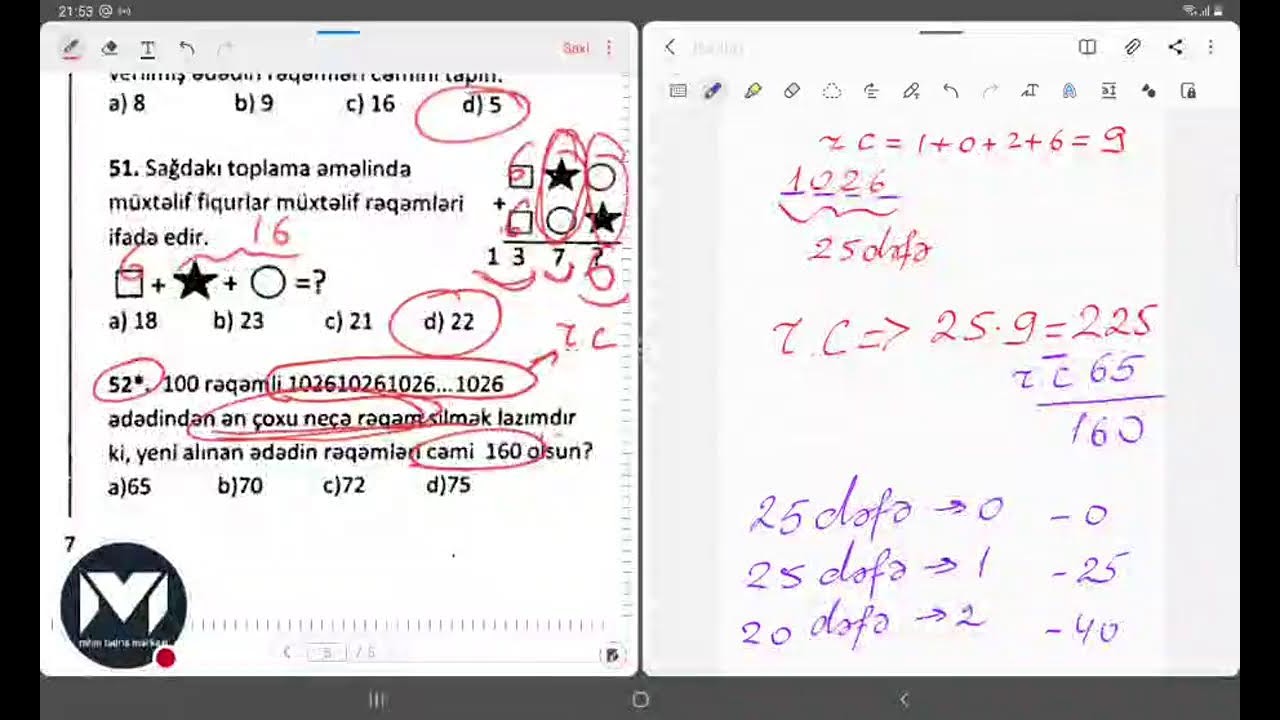 21:53
Saxl
verilmiş ədədin rəqəmləri cəmini tapın.
a) 8 b) 9 c) 16 d) 5
51. Sağdakı toplama əməlində
müxtəlif fiqurlar müxtəlif rəqəmləri
ifadə edir. 16
6
□ + ★ + ○ =?
6 □ ★ ○
+ 6 □ ○ ★
1 3 7 ?
6
a) 18 b) 23 c) 21 d) 22
r.c
52*. 100 rəqəmli 102610261026...1026
ədədindən ən çoxu neçə rəqəm silmək lazımdır
ki, yeni alınan ədədin rəqəmləri cəmi 160 olsun?
a)65 b)70 c)72 d)75
7
mhm tədris mərkəzi
5 / 6
r c = 1+0+2+6 = 9
1026
25 dəfə
r.c => 25·9=225
r c 65
160
25 dəfə → 0 - 0
25 dəfə → 1 - 25
20 dəfə → 2 - 40